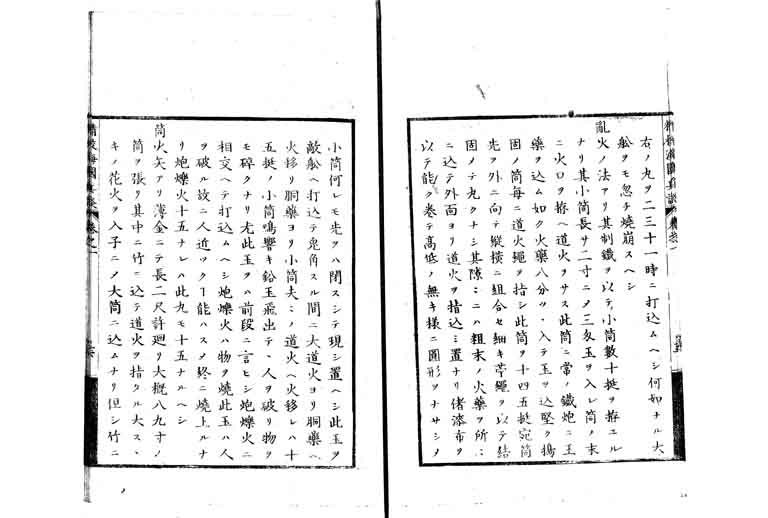 右ノ丸ヲ二三十一時ニ打込ムヘシ何如ナル大
舩ヲモ忽チ燒崩スヘシ
亂火ノ法アリ其制鐵ヲ以テ小筒數十挺ヲ拵ユル
ナリ其小筒長サ二寸ニメ三匁玉ヲ入レ筒ノ末
ニ火口ヲ拵ヘ道火ヲサス此筒ニ常ノ鐵炮ニ玉
藥ヲ込ム如ク火藥八分ツヽ入テ玉ヲ込堅ク搗
固ノ筒每ニ道火繩ヲ指シ此筒ヲ十四五挺宛筒
先ヲ外ニ向テ縱橫ニ組合セ細キ苧繩ヲ以テ結
固ノテ丸クナシ其隙ミニハ粗末ノ火藥ヲ所ミ
ニ込テ外面ヨリ道火ヲ指込ミ置ナリ偖漆布ヲ
以テ能ク卷テ高低ノ無キ樣ニ圓形ヲナサシメ
小筒何レモ先ヲハ閉スシテ現シ置ヘシ此玉ヲ
敵舩ヘ打込テ兎角スル間ニ大道火ヨリ胴藥ヘ
火移リ胴藥ヨリ小筒夫ミノ道火ヘ火移レハ十
五挺ノ小筒鳴響キ鉛玉飛出テヽ人ヲ破リ物ヲ
モ碎クナリ尤此玉ヲハ前段ニ言ヒシ炮爍火ニ
相交ヘテ打込ムヘシ炮爍火ハ物ヲ燒此玉ハ人
ヲ破ル故ニ人近ツクー能ハスメ終ニ燒上ルナ
リ炮爍火十五ナレハ此丸モ十五ナルヘシ
筒火矢アリ薄金ニテ長二尺許廻リ大概八九寸ノ
筒ヲ張リ其中ニ竹ニ込テ道火ヲ指タル大スヽ
キノ花火ヲ入子ニメ大筒ニ込ムナリ但シ竹ニ